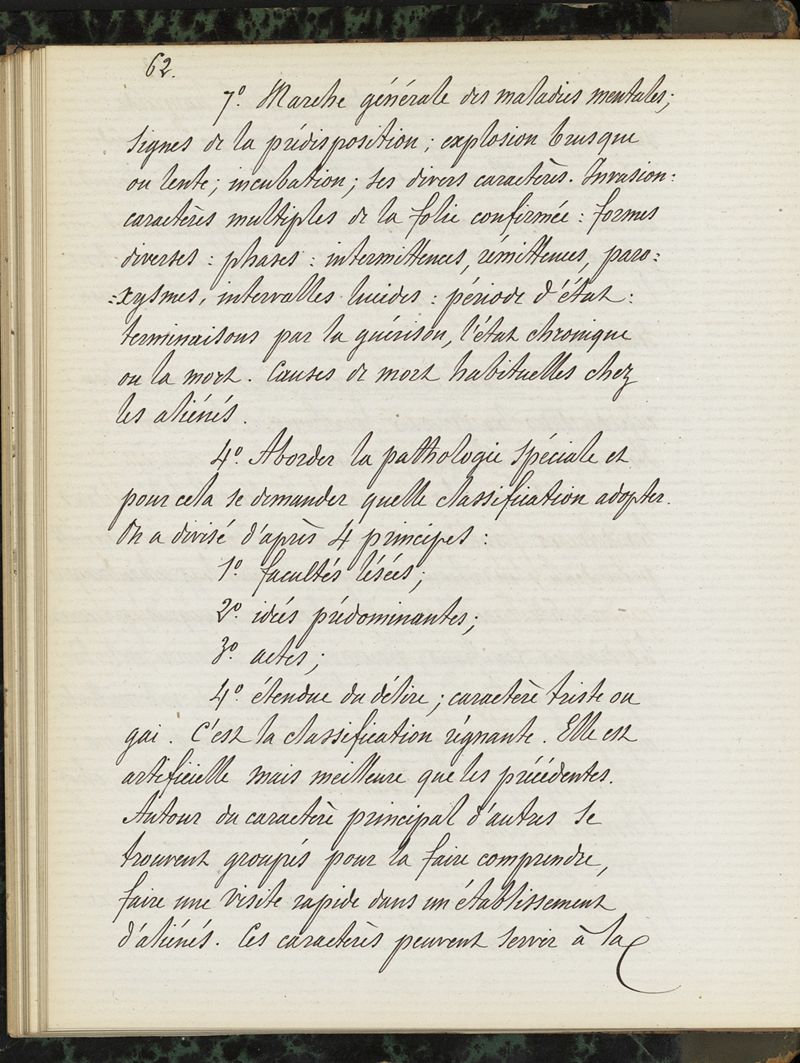 62.
7° Marche générale des maladies mentales;
signes de la prédisposition; explosion brusque
ou lente; incubation; ses divers caractères. Invasion:
caractères multiples de la folie confirmée: formes
diverses: phases: intermittences, rémittences, paro=
=xysmes, intervalles lucides: période d'état:
terminaisons par la guérison, l'état chronique
ou la mort. Causes de mort habituelles chez
les aliénés.
4° Aborder la pathologie spéciale et
pour cela se demander quelle classification adopter.
On a divisé d'après 4 principes:
1° facultés lésées;
2° idées prédominantes;
3° actes;
4° étendue du délire; caractère triste ou
gai. C'est la classification régnante. Elle est
artificielle mais meilleure que les précédentes.
Autour du caractère principal d'autres se
trouvent groupés pour la faire comprendre,
faire une visite rapide dans un établissement
d'aliénés. Ces caractères peuvent servir à la